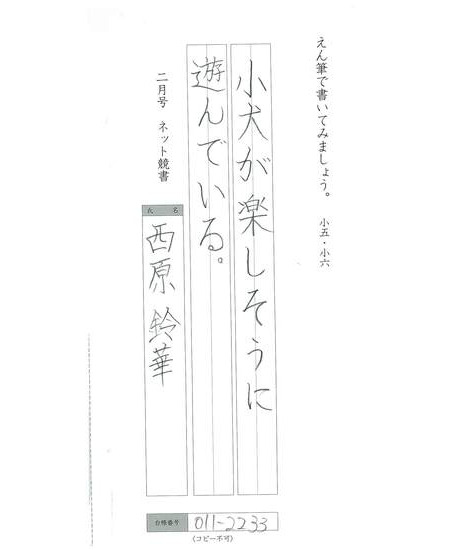 えん筆で書いてみましょう。 小五・小六
小犬が楽しそうに
遊んでいる。
二月号 ネット競書
氏名
西原 鈴華
台帳番号
011-2233
(コピー不可)